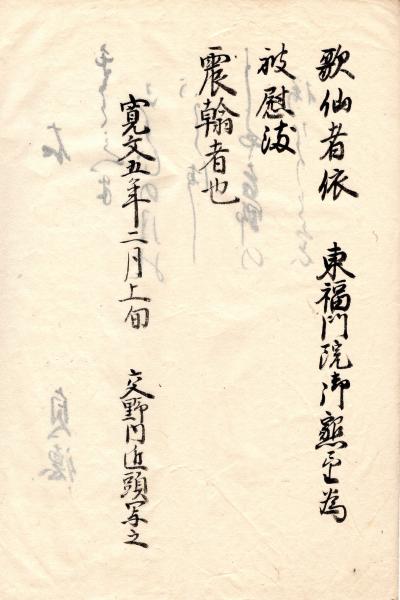 歌仙者依 東福門院御懇望為
被慰
震翰者也
寛文五年二月上旬 交野門近頭写之